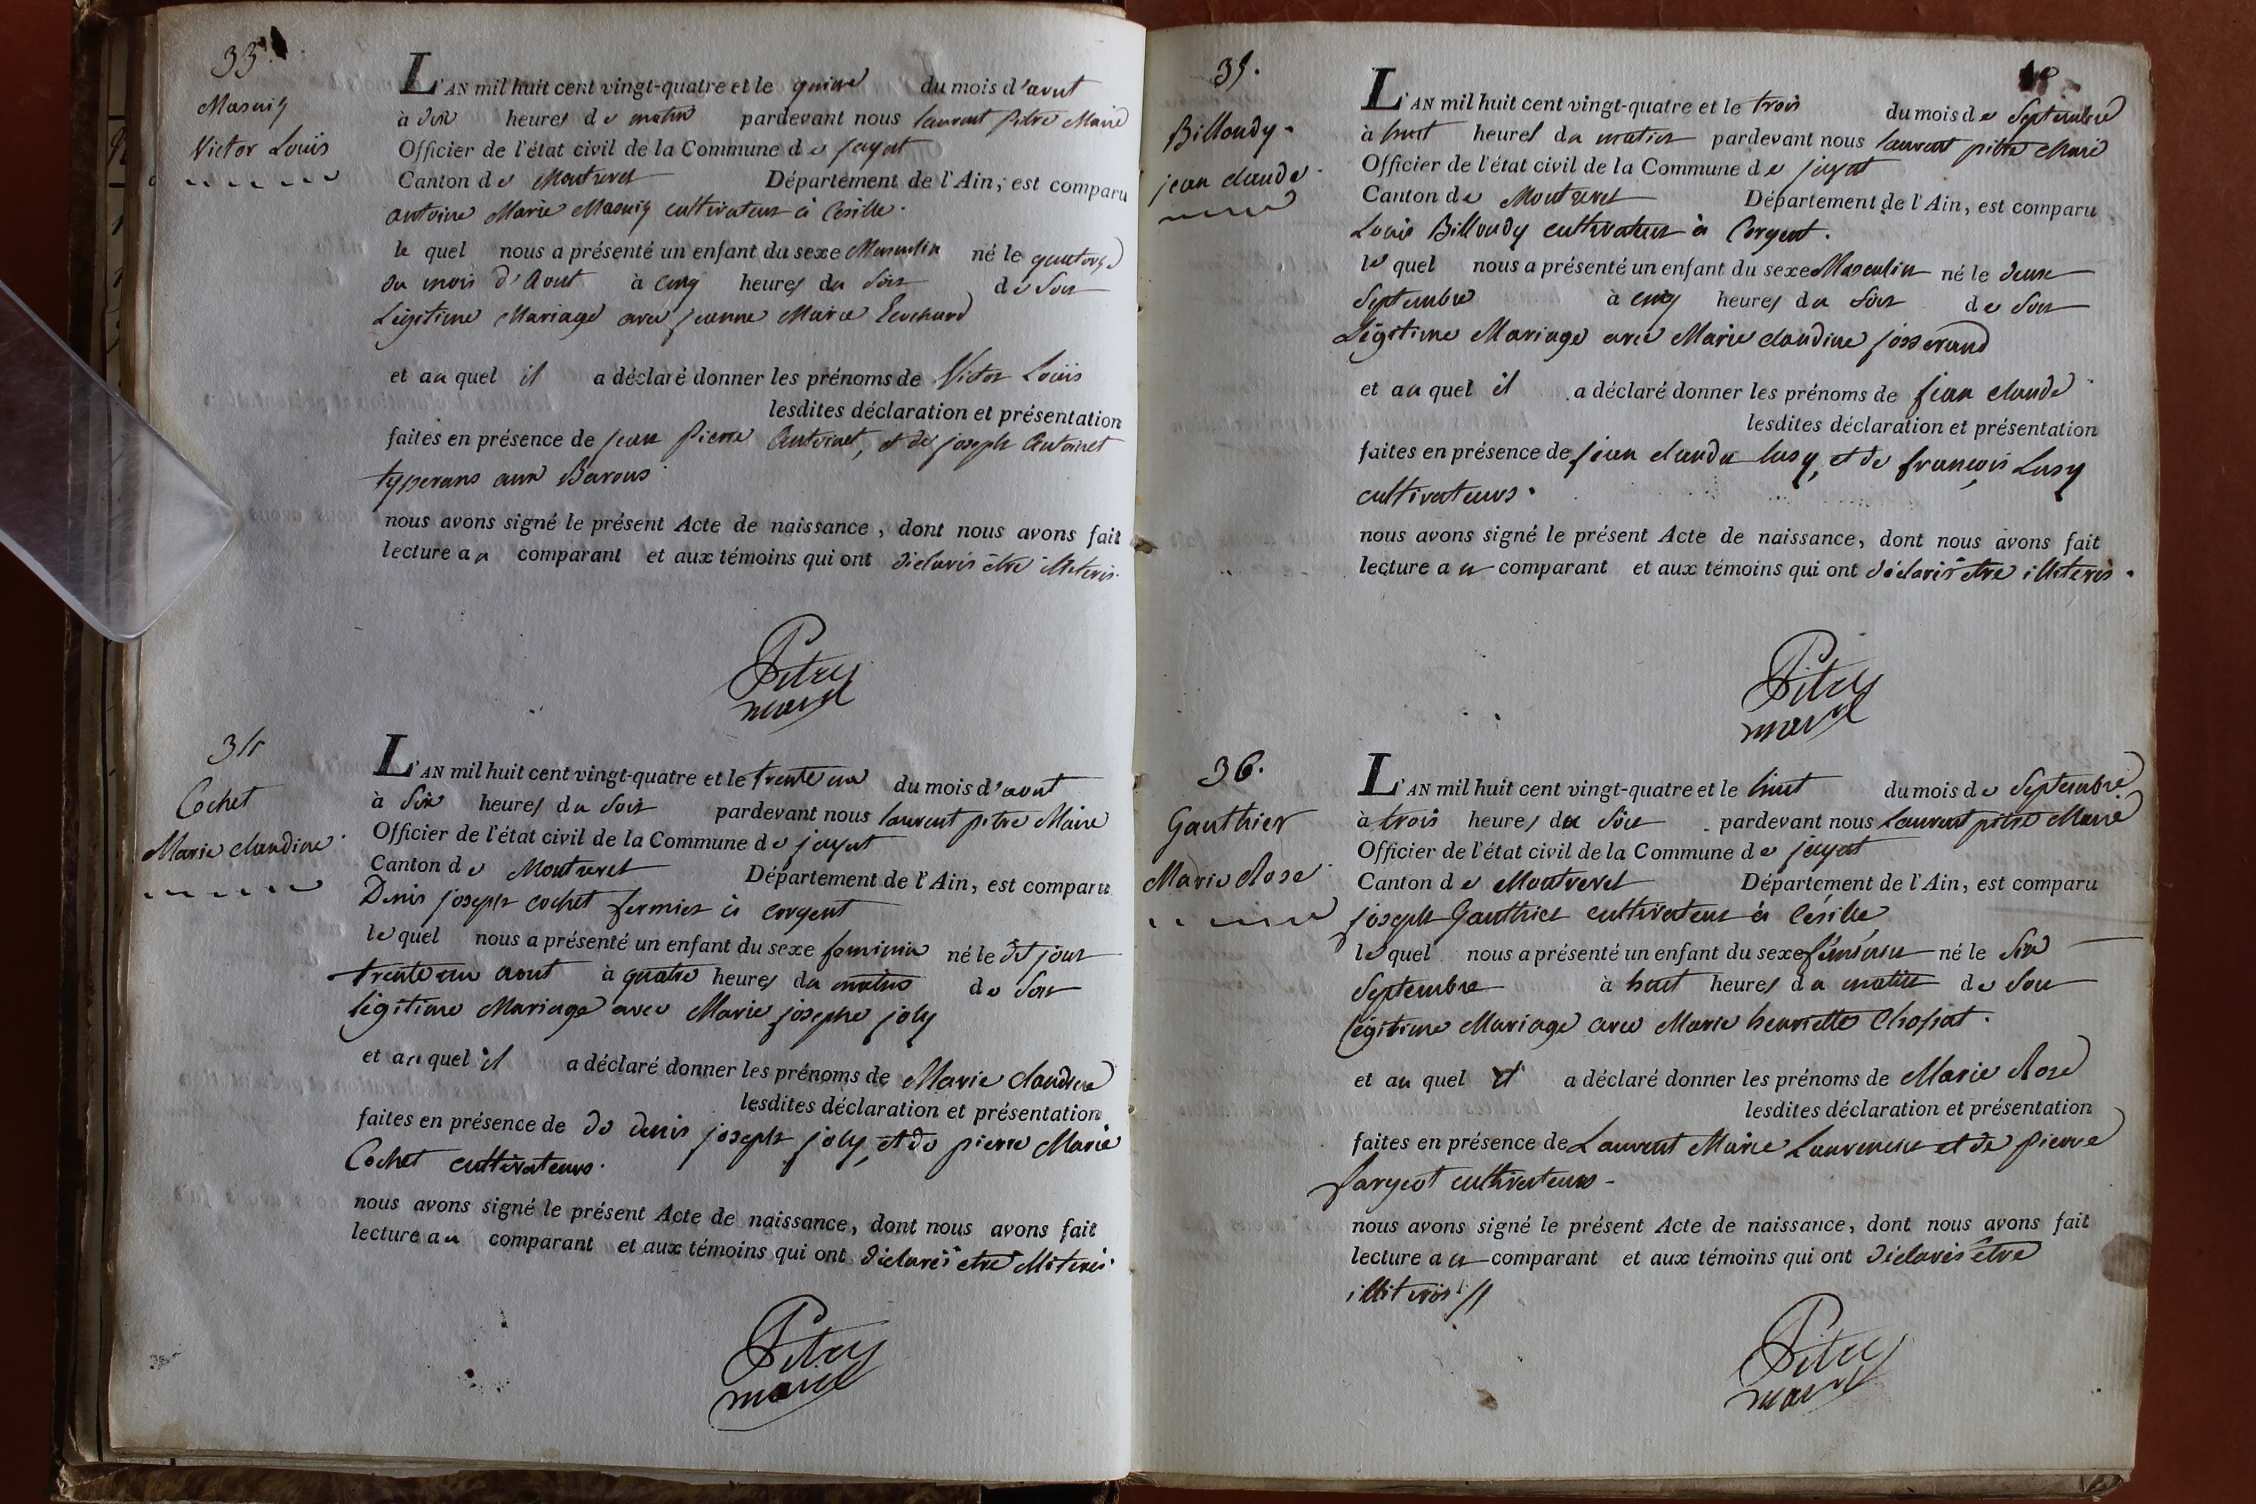 33.
Masuiy
Victor Louis
L'AN mil huit cent vingt-quatre et le quinze du mois d'aout
à dix heures de matin pardevant nous laurent pitre Maire
Officier de l'état civil de la Commune de jayat
Canton de Montrevel Département de l'Ain, est comparu
antoine Marie Masuiy cultivateur à Césille.
le quel nous a présenté un enfant du sexe Masculin né le quatorze
du mois d'Aout à cinq heures du soir de son
Légitime Mariage avec jeanne Marie
et au quel il a déclaré donner les prénoms de Victor Louis
lesdites déclaration et présentation
faites en présence de jean pierre Antoinet, et de joseph Antoinet
aux Barons
nous avons signé le présent Acte de naissance, dont nous avons fait
lecture au comparant et aux témoins qui ont déclarés être illiterés.
Pitre
maire
34
Cochet
Marie claudine
L'AN mil huit cent vingt-quatre et le trente un du mois d'aout
à six heures du soir pardevant nous laurent pitre Maire
Officier de l'état civil de la Commune de jayat
Canton de Montrevel Département de l'Ain, est comparu
Denis joseph cochet fermier à corgent
le quel nous a présenté un enfant du sexe feminin né le dit jour
trente un aout à quatre heures du matin de son
légitime Mariage avec Marie josephe joly
et au quel il a déclaré donner les prénoms de Marie claudine
lesdites déclaration et présentation
faites en présence de de denis joseph joly, et de pierre Marie
Cochet cultivateurs.
nous avons signé le présent Acte de naissance, dont nous avons fait
lecture au comparant et aux témoins qui ont déclarés etre illiterés.
Pitre
maire
35.
Billoudy.
jean claude.
L'AN mil huit cent vingt-quatre et le trois du mois de Septembre
à huit heures du matin pardevant nous laurent pitre Maire
Officier de l'état civil de la Commune de jayat
Canton de Montrevel Département de l'Ain, est comparu
Louis Billoudy cultivateur à Corgent.
le quel nous a présenté un enfant du sexe Masculin né le deux
Septembre à cinq heures du soir de son
Légitime Mariage avec Marie claudine josserand
et au quel il a déclaré donner les prénoms de jean claude
lesdites déclaration et présentation
faites en présence de jean claude Lusy, et de françois Lusy
cultivateurs.
nous avons signé le présent Acte de naissance, dont nous avons fait
lecture au comparant et aux témoins qui ont déclarés etre illiterés.
Pitre
maire
36.
Gauthier
Marie Rose
L'AN mil huit cent vingt-quatre et le huit du mois de Septembre
à trois heures du soir pardevant nous laurent pitre Maire
Officier de l'état civil de la Commune de jayat
Canton de Montrevel Département de l'Ain, est comparu
joseph Gauthier cultivateur à Césille
le quel nous a présenté un enfant du sexe féminin né le six
Septembre à huit heures du matin de son
légitime Mariage avec Marie henriette Chossat.
et au quel il a déclaré donner les prénoms de Marie Rose
lesdites déclaration et présentation
faites en présence de Laurent Marie et de pierre
fargeot cultivateurs
nous avons signé le présent Acte de naissance, dont nous avons fait
lecture au comparant et aux témoins qui ont déclarés être
illiterés
Pitre
maire